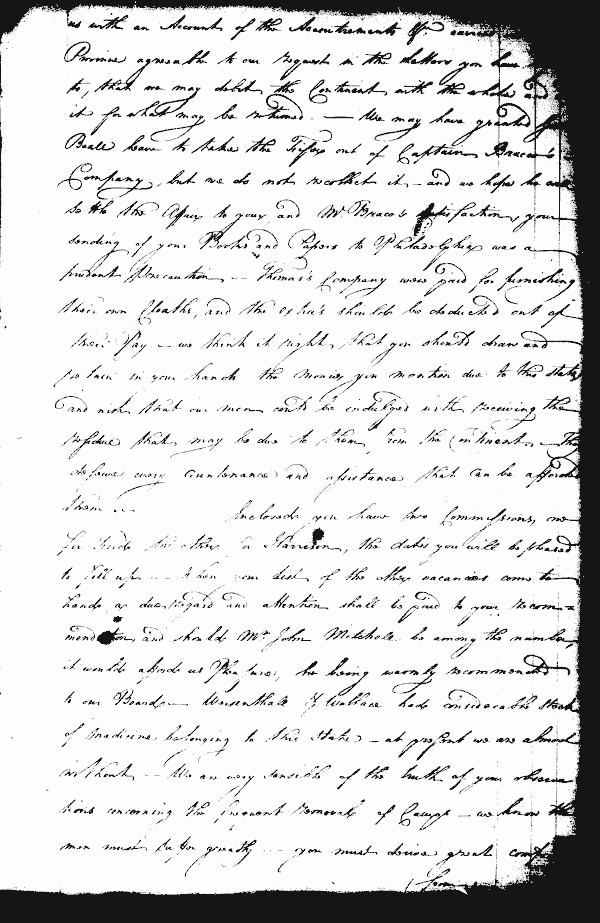 us with an Account of the Accoutrements &c. carried
Province agreeable to our request in the Letters you have
to, that we may debit the Continent with the whole and
it for what may be returned. — We may have granted
Beall leave to take the Fifes out of Captain Bracco's
Company, but we do not recollect it — and we hope he will
settle the Affair to your and Mr Bracco's satisfaction, your
sending of your Books and Papers to Philadelphia was a
prudent precaution — Thomas's Company were paid for furnishing
their own Cloaths, and the extra's should be deducted out of
their Pay — we think it right, that you should draw and
retain in your hands the Monies you mention due to this State
and wish that our men could be indulged with receiving the
residue that may be due to them from the Continent. — They
deserve every countenance and assistance that can be afforded
them — Inclosed you have two Commissions, one
for the other for Harrison, the dates you will be pleased
to fill up — When your List of the other vacancies come to
hand, a due regard and attention shall be paid to your recom=
mendation, and should Mr John Mitchell be among the number,
it would afford us Pleasure, he being warmly recommended
to our Board — Weisenthall & Wallace had considerable Stock
of medicine belonging to this State — at present we are almost
without — We are very sensible of the truth of your observa
tions concerning the frequent removals of Camps — we know the
men must suffer greatly — you must derive great
from